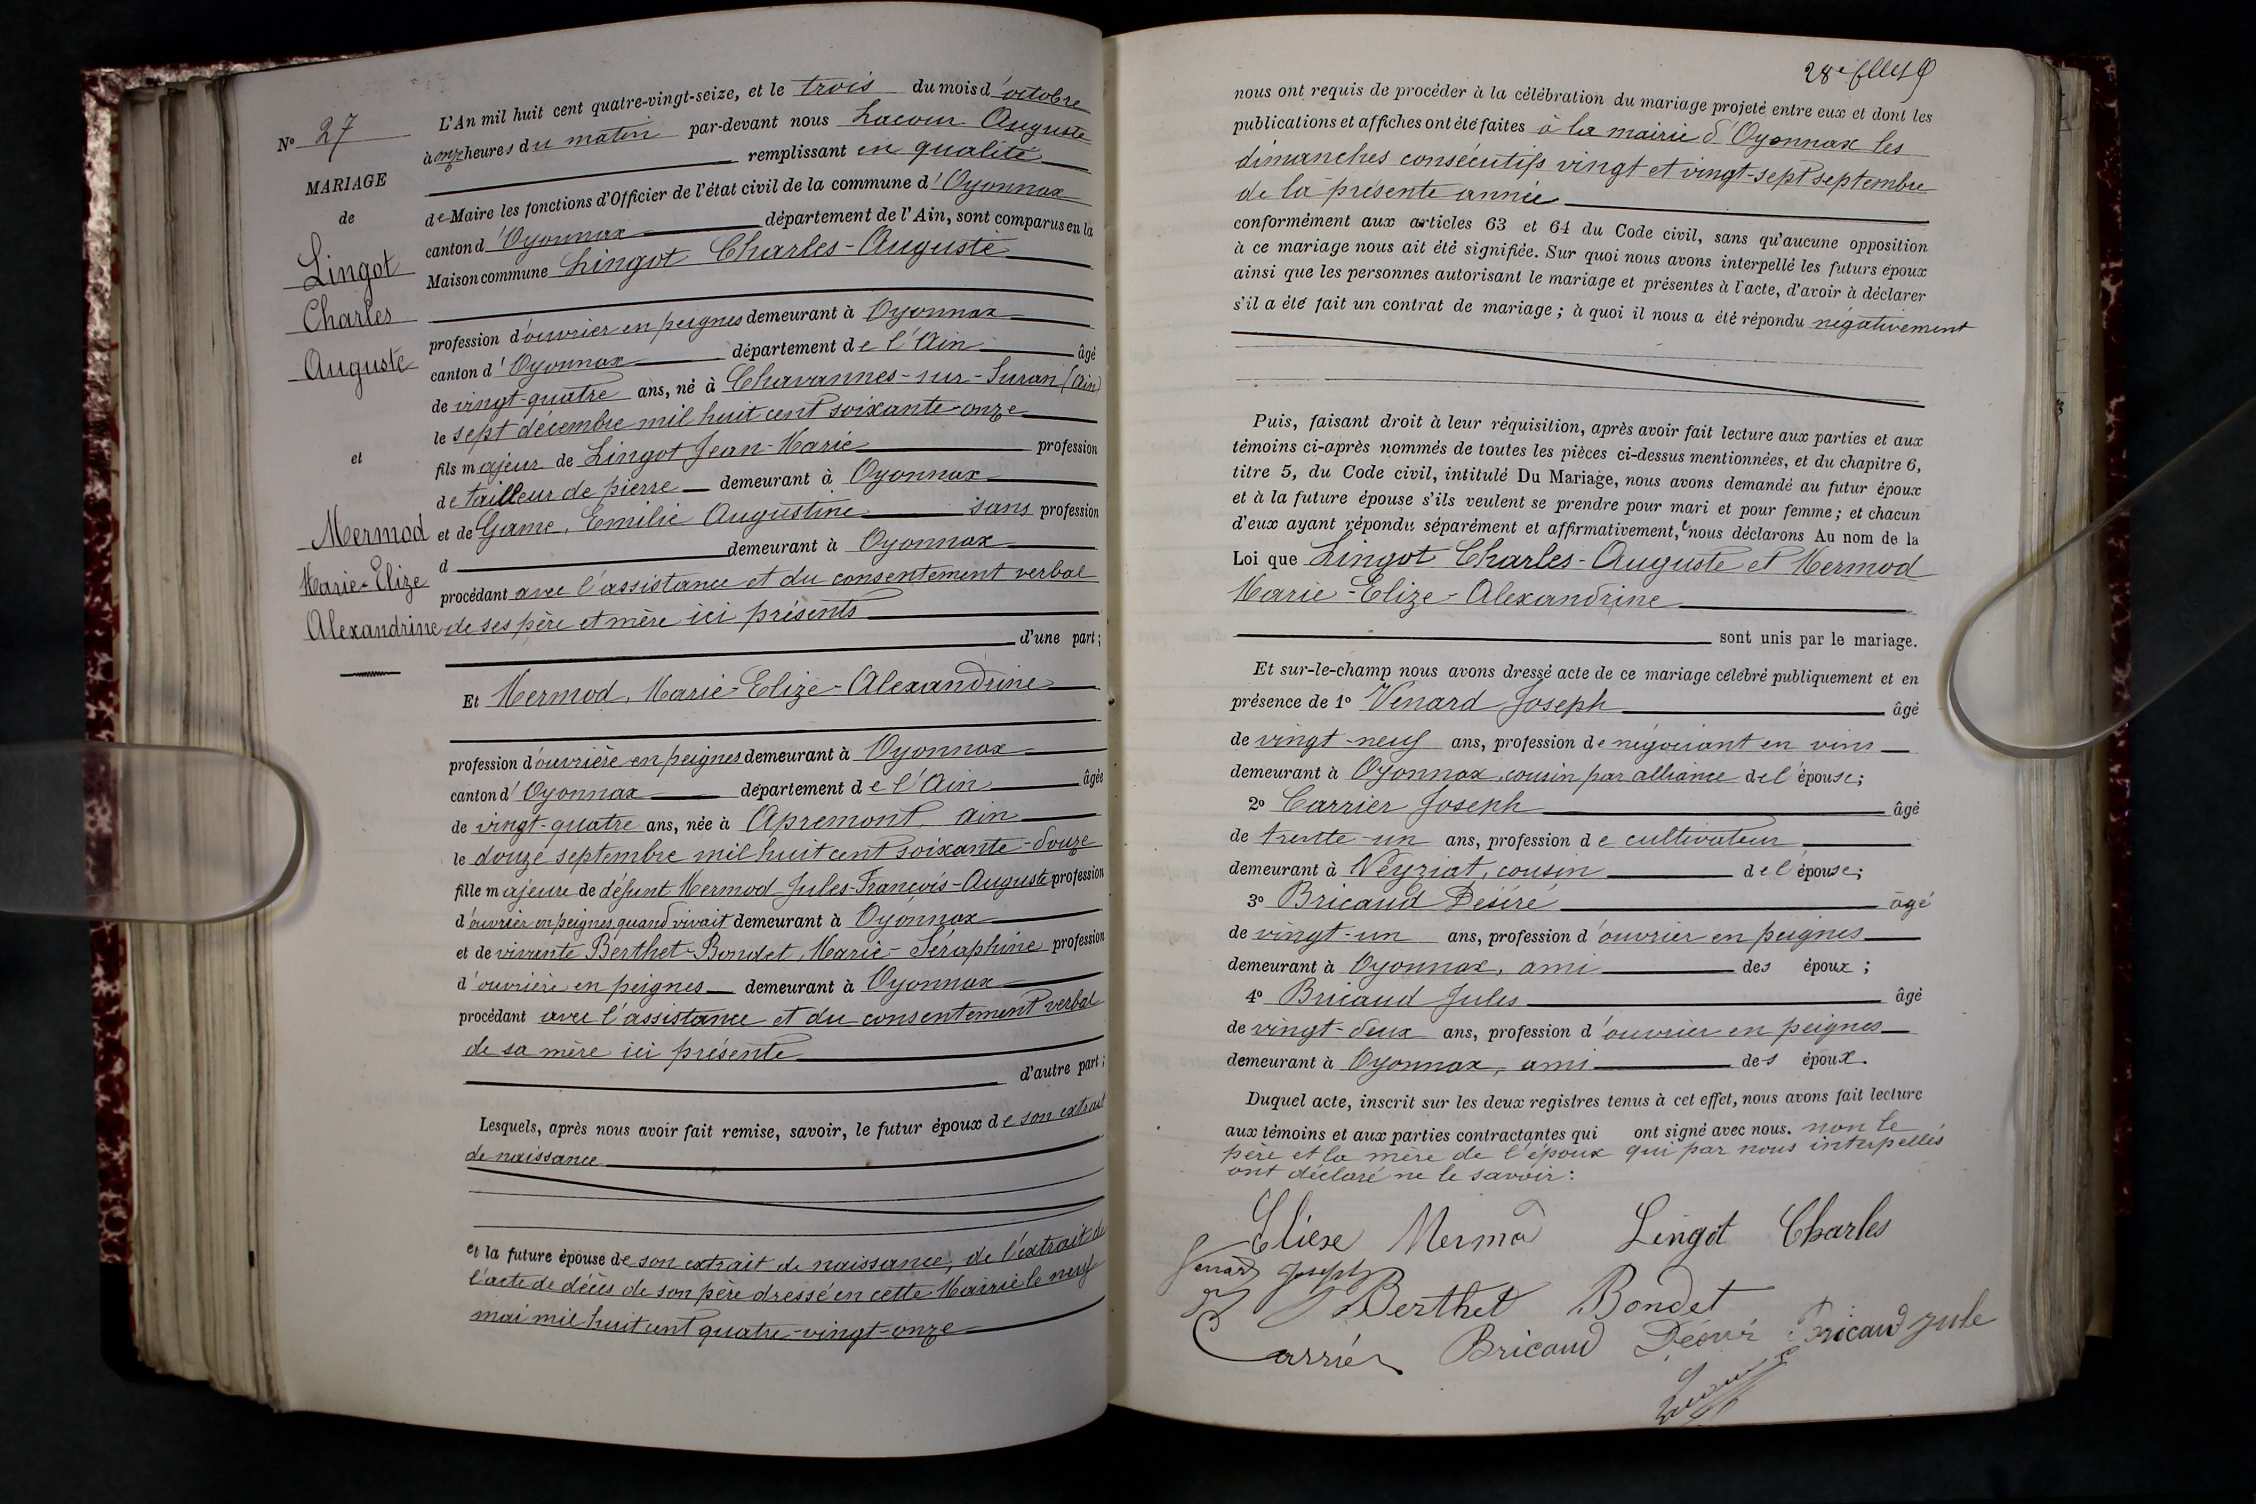 N° 27
MARIAGE
de
Lingot
Charles
Auguste
et
Mermod
Marie-Elize
Alexandrine
L'An mil huit cent quatre-vingt-seize, et le trois du mois d'octobre
à onze heures du matin par-devant nous Lacour Auguste
remplissant en qualité
de Maire les fonctions d'Officier de l'état civil de la commune d'Oyonnax
canton d'Oyonnax département de l'Ain, sont comparus en la
Maison commune Lingot Charles-Auguste
profession d'ouvrier en peignes demeurant à Oyonnax
canton d'Oyonnax département de l'Ain âgé
de vingt-quatre ans, né à Chavannes-sur-Suran (Ain)
le sept décembre mil huit cent soixante-onze
fils majeur de Lingot Jean-Marie profession
de tailleur de pierre demeurant à Oyonnax
et de Game, Emilie Augustine sans profession
d demeurant à Oyonnax
procédant avec l'assistance et du consentement verbal
de ses père et mère ici présents
d'une part;
Et Mermod, Marie-Elize-Alexandrine
profession d'ouvrière en peignes demeurant à Oyonnax
canton d'Oyonnax département de l'Ain âgée
de vingt-quatre ans, née à Apremont Ain
le douze septembre mil huit cent soixante-douze
fille majeure de défunt Mermod Jules-François-Auguste profession
d'ouvrier en peignes quand vivait demeurant à Oyonnax
et de vivante Berthet-Bondet, Marie-Séraphine profession
d'ouvrière en peignes demeurant à Oyonnax
procédant avec l'assistance et du consentement verbal
de sa mère ici présente
d'autre part;
Lesquels, après nous avoir fait remise, savoir, le futur époux de son extrait
de naissance
et la future épouse de son extrait de naissance, de l'extrait de
l'acte de décès de son père dressé en cette Mairie le neuf
mai mil huit cent quatre-vingt-onze
28e
nous ont requis de procéder à la célébration du mariage projeté entre eux et dont les
publications et affiches ont été faites à la mairie d'Oyonnax les
dimanches consécutifs vingt et vingt-sept septembre
de la présente année
conformément aux articles 63 et 64 du Code civil, sans qu'aucune opposition
à ce mariage nous ait été signifiée. Sur quoi nous avons interpellé les futurs époux
ainsi que les personnes autorisant le mariage et présentes à l'acte, d'avoir à déclarer
s'il a été fait un contrat de mariage; à quoi il nous a été répondu négativement
Puis, faisant droit à leur réquisition, après avoir fait lecture aux parties et aux
témoins ci-après nommés de toutes les pièces ci-dessus mentionnées, et du chapitre 6,
titre 5, du Code civil, intitulé Du Mariage, nous avons demandé au futur époux
et à la future épouse s'ils veulent se prendre pour mari et pour femme; et chacun
d'eux ayant répondu séparément et affirmativement, nous déclarons Au nom de la
Loi que Lingot Charles-Auguste et Mermod
Marie-Elize-Alexandrine
sont unis par le mariage.
Et sur-le-champ nous avons dressé acte de ce mariage célébré publiquement et en
présence de 1° Venard Joseph âgé
de vingt-neuf ans, profession de négociant en vins
demeurant à Oyonnax, cousin par alliance de l'épouse;
2° Carrier Joseph âgé
de trente-un ans, profession de cultivateur
demeurant à Neyriat, cousin de l'épouse;
3° Bricaud Désiré âgé
de vingt-un ans, profession d'ouvrier en peignes
demeurant à Oyonnax, ami des époux;
4° Bricaud Jules âgé
de vingt-deux ans, profession d'ouvrier en peignes
demeurant à Oyonnax, ami des époux.
Duquel acte, inscrit sur les deux registres tenus à cet effet, nous avons fait lecture
aux témoins et aux parties contractantes qui ont signé avec nous. non le
père et la mère de l'époux qui par nous interpellés
ont déclaré ne le savoir:
Eliexe Mermod Lingot Charles
Venard Joseph
Berthet Bondet
Carrier Bricaud Désiré Bricaud Jule